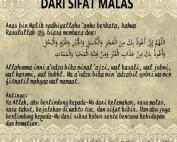 DARI SIFAT MALAS
Anas bin Malik radhiyallahu 'anhu berkata, bahwa
Rasulullah ﷺ biasa membaca doa:
اللَّهُمَّ إِنِّي أَعُوذُ بِكَ مِنَ الْعَجْزِ وَالْكَسَلِ وَالْجُبْنِ وَالْهَرَمِ وَالْبُخْلِ
وَأَعُوذُ بِكَ مِنْ عَذَابِ الْقَبْرِ وَمِنْ فِتْنَةِ الْمَحْيَا وَالْمَمَاتِ
Allahumma inni a'udzu bika minal 'ajzi, wal kasali, wal jubni,
wal haromi, wal bukhl. Wa a'udzu bika min 'adzabil qobri wa min
fitnatil mahyaa wal mamaat.
Artinya:
Ya Allah, aku berlindung kepada-Mu dari kelemahan, rasa malas,
rasa takut, kejelekan di waktu tua, dan sifat kikir. Dan aku juga
berlindung kepada-Mu dari siksa kubur serta bencana kehidupan
dan kematian.